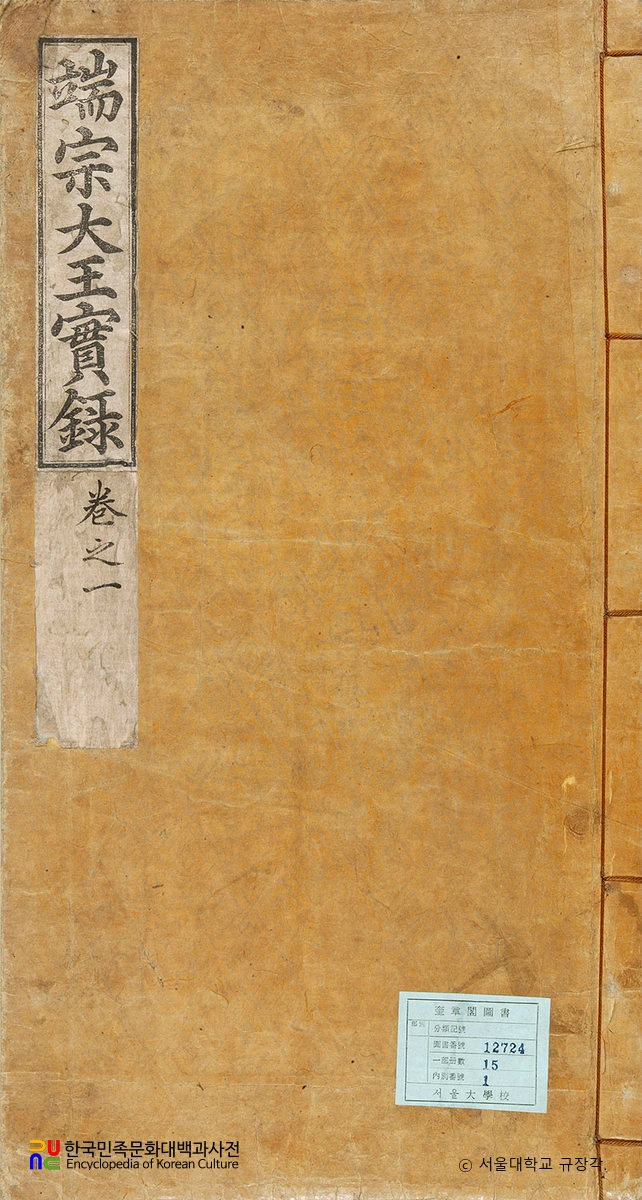 端宗大王實錄
卷之一
奎章閣圖書
分類記號
圖書番號 12724
一部冊數 15
內別番號 1
서울大學校
한국민족문화대백과사전
Encyclopedia of Korean Culture
© 서울대학교 규장각